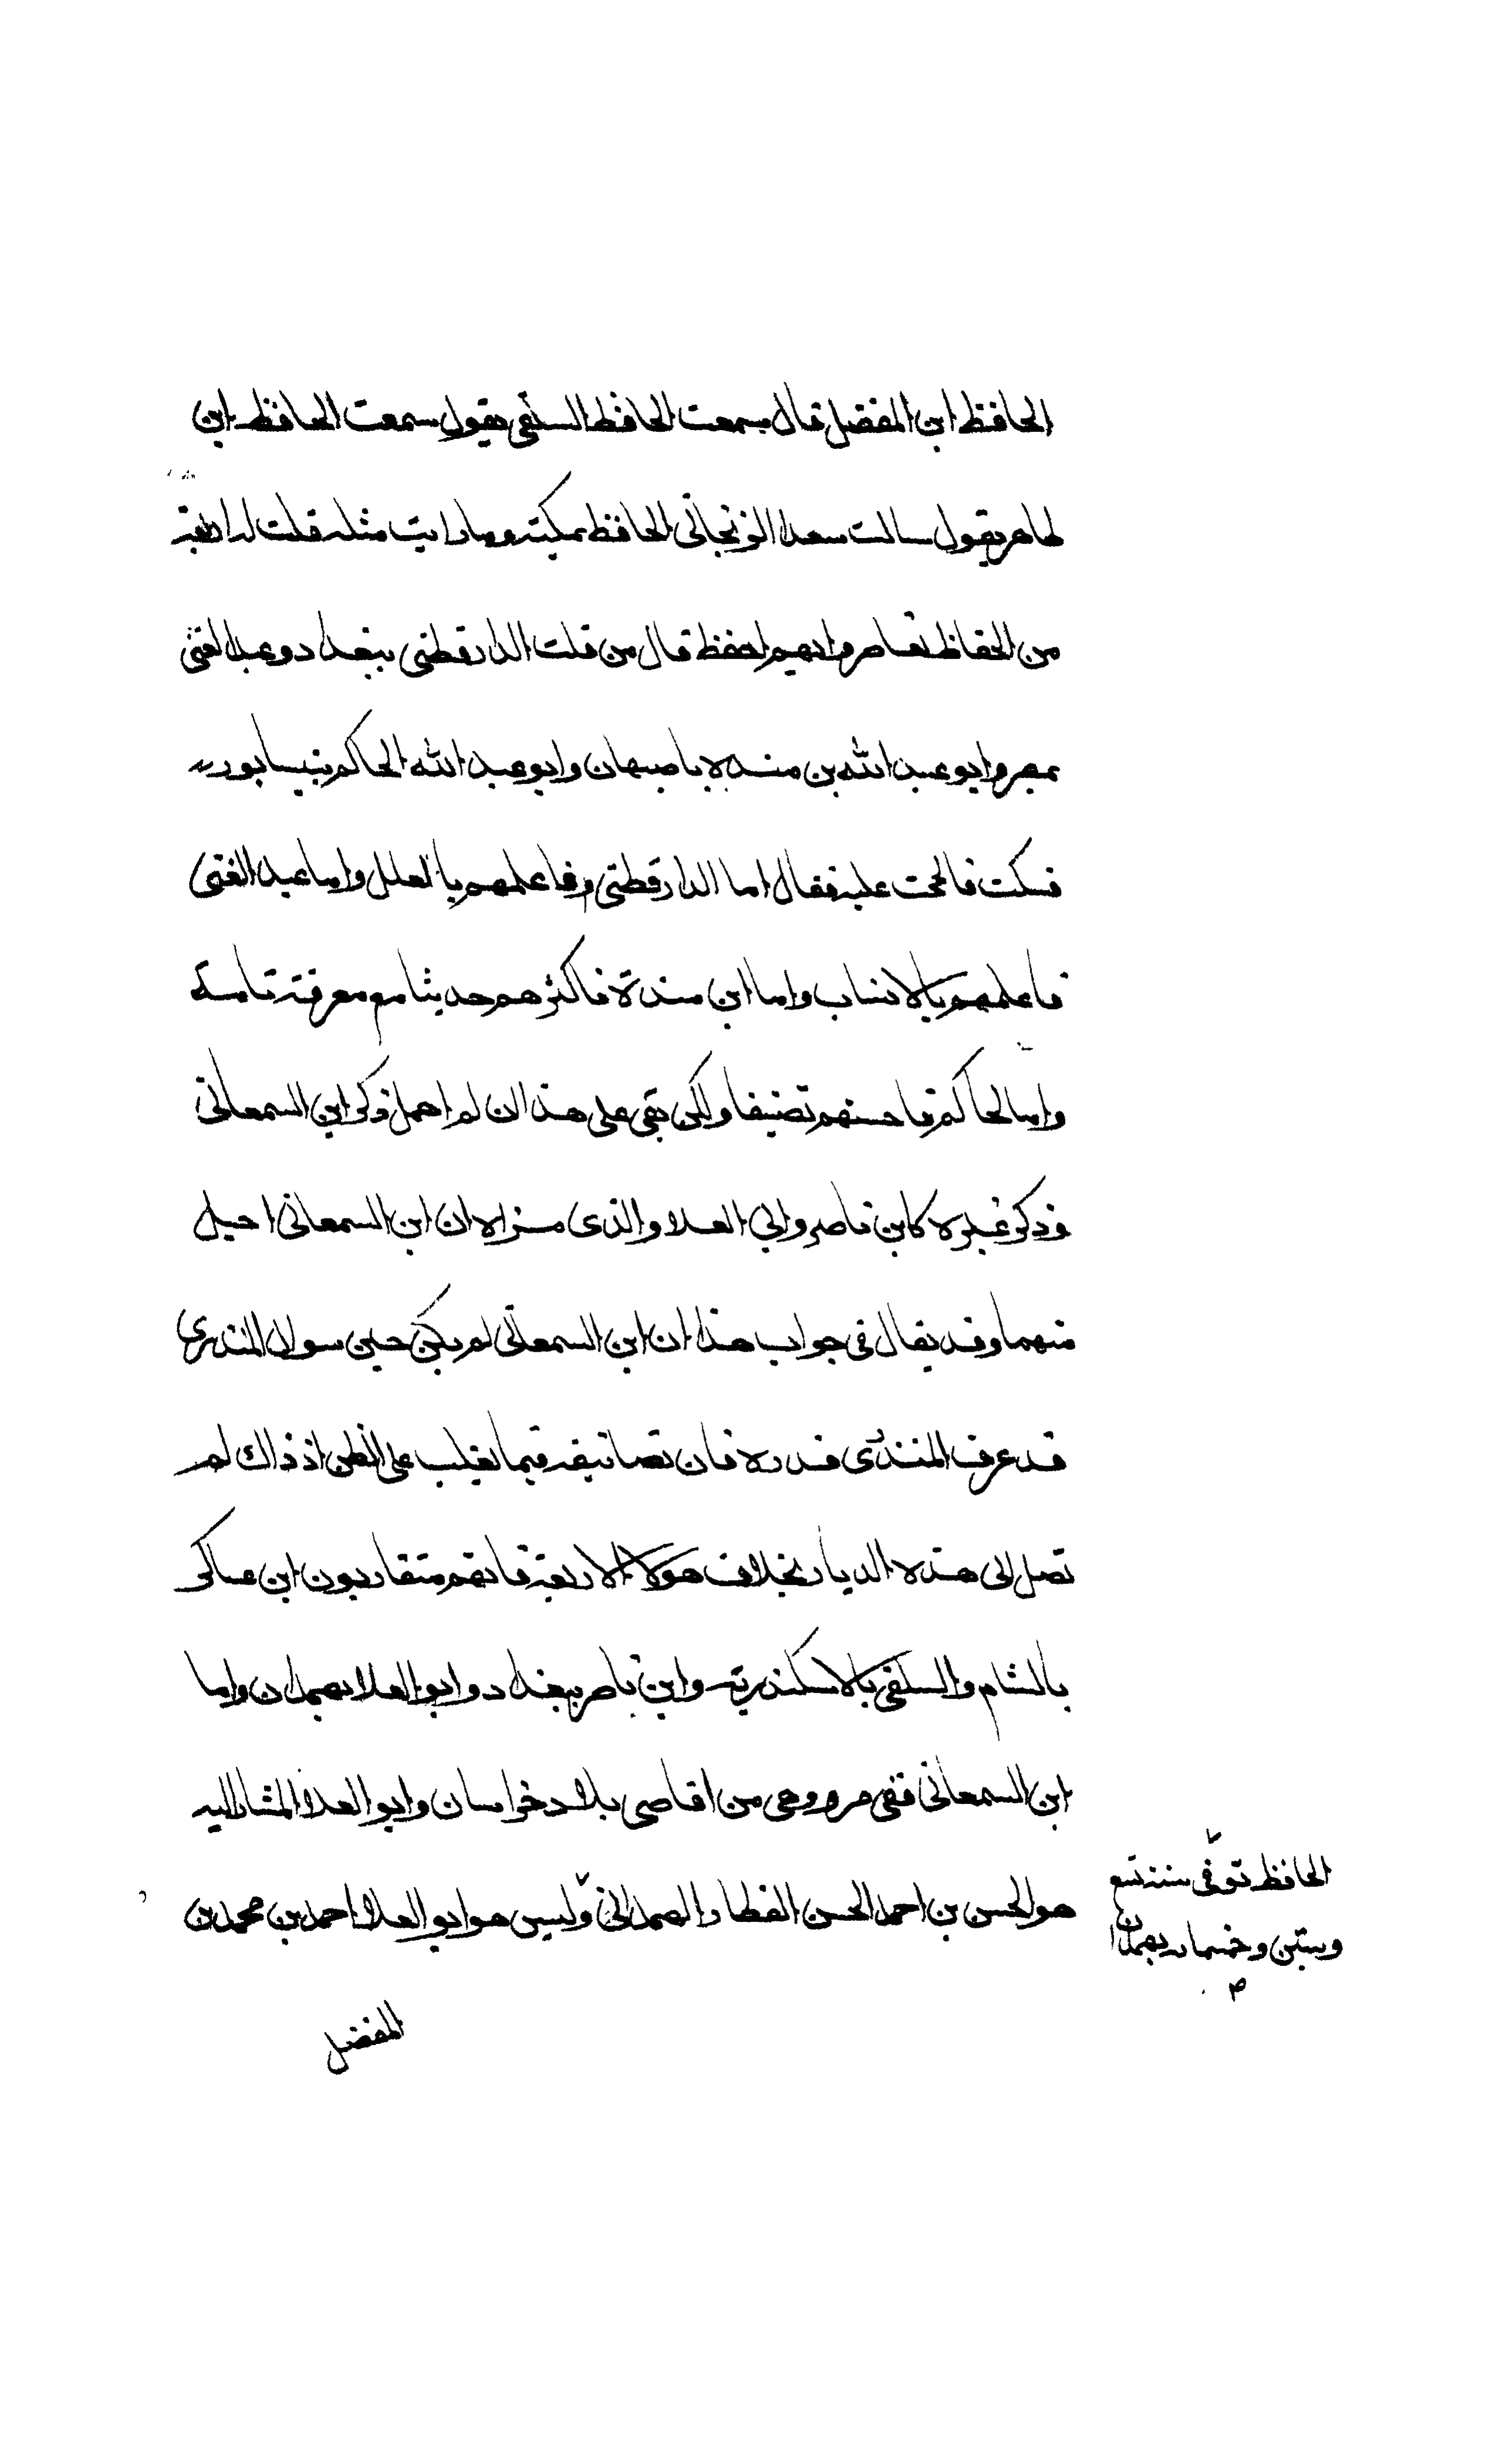 الحافظ ابن المفضل قال سمعت الحافظ السلفي يقول سمعت الحافظ ابن
طاهر يقول سالت سعدا الزنجاني الحافظ بمكة وما رايت مثله قلت له اربعة
من الحفاظ تعاصروا ايهم احفظ قال من قلت الدارقطني ببغداد وعبد الغني
بمصر وابو عبد الله بن منده باصبهان وابو عبد الله الحاكم بنيسابور
فسكت فالححت عليه فقال اما الدارقطني فاعلمهم بالعلل واما عبد الغني
فاعلمهم بالانساب واما ابن مندة فاكثرهم حديثا مع معرفة تامة
واما الحاكم فاحسنهم تصنيفا ولكن بقي على هذا ان لم اهمل ذكر ابن السمعاني
وذكر غيره كابن ناصر وابي العلا والذي منزالا ان ابن السمعاني اجل
منهما وقد يقال في جواب هذا ان ابن السمعاني لم يكن حين سوال المنذري
قد عرف المنذري قدره فان تصانيفه فيما يغلب على الظن اذ ذاك لم
تصل الى هذه الديار بخلاف هولا الاربعة فانهم متقاربون ابن عساكر
بالشام والسلفي بالاسكندرية وابن ناصر ببغداد وابو العلا بهمدان واما
ابن السمعاني ففي مرو وهي من اقاصي بلاد خراسان وابو العلا المشار اليه
هو الحسن بن احمد الحسن العطار الهمداني وليس هو ابو العلا احمد بن محمد بن
الحافظ توفي سنة تسع
وستين وخمسمايه بهمدان
صح
المفضل